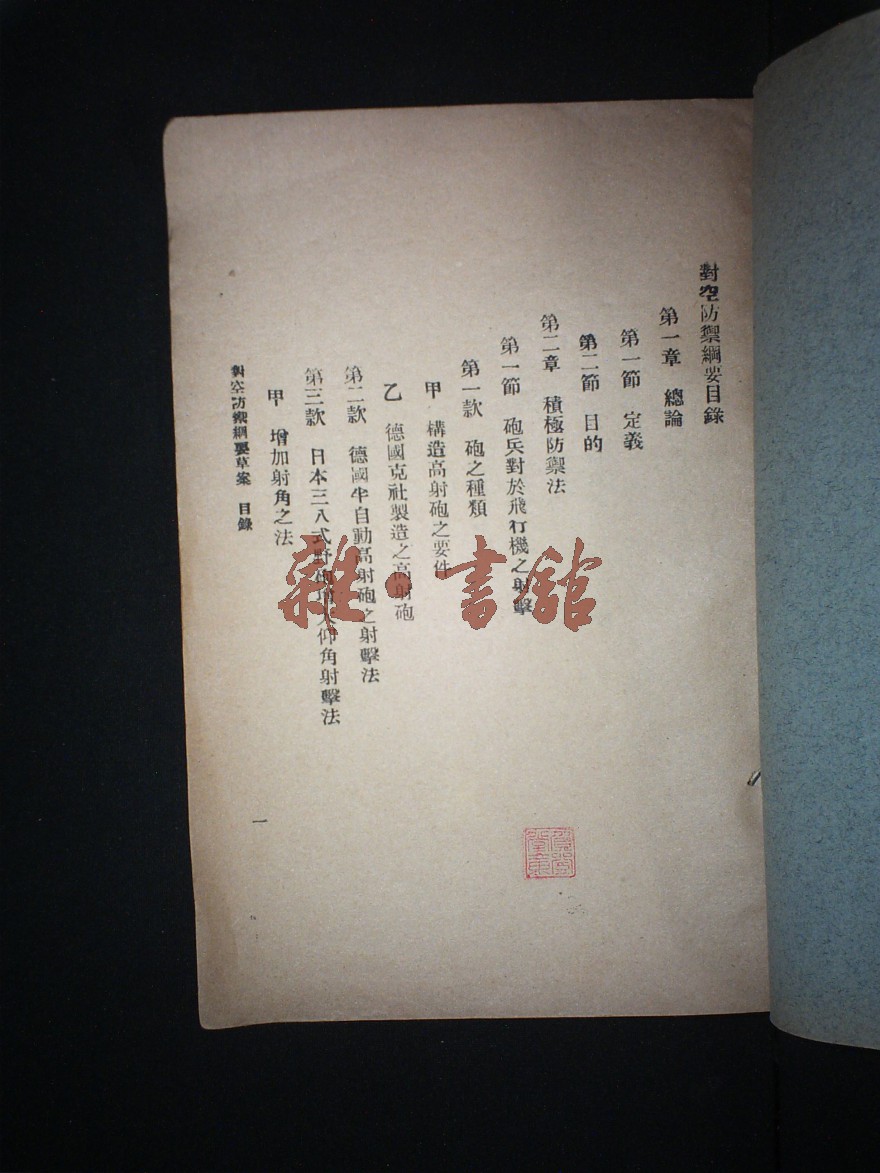 對空防禦綱要目錄
第一章 總論
第一節 定義
第二節 目的
第二章 積極防禦法
第一節 砲兵對於飛行機之射擊
第一款 砲之種類
甲 構造高射砲之要件
乙 德國克社製造之高射砲
第二款 德國半自動高射砲之射擊法
第三款 日本三八式野砲增大仰角射擊法
甲 增加射角之法
對空防禦綱要草案 目錄
一
雜·書館